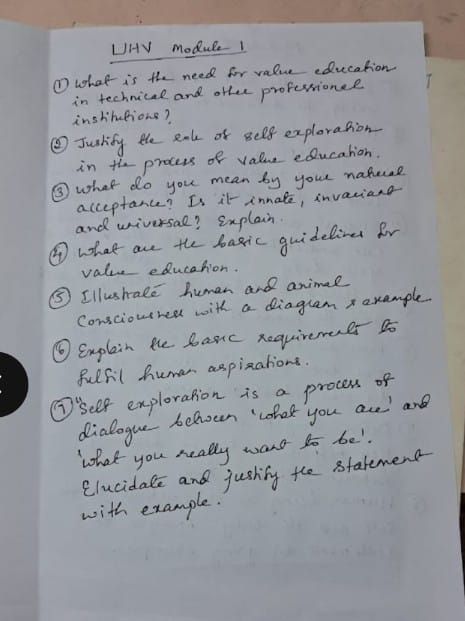 UHV Module 1
① What is the need for value education
in technical and other professional
institutions?
② Justify the role of self exploration
in the process of value education.
③ What do you mean by your natural
acceptance? Is it innate, invariant
and universal? Explain.
④ What are the basic guidelines for
value education.
⑤ Illustrate human and animal
Consciousness with a diagram & example.
⑥ Explain the basic requirements to
fulfil human aspirations.
⑦ "Self exploration is a process of
dialogue between 'what you are' and
'what you really want to be'.
Elucidate and justify the statement
with example.